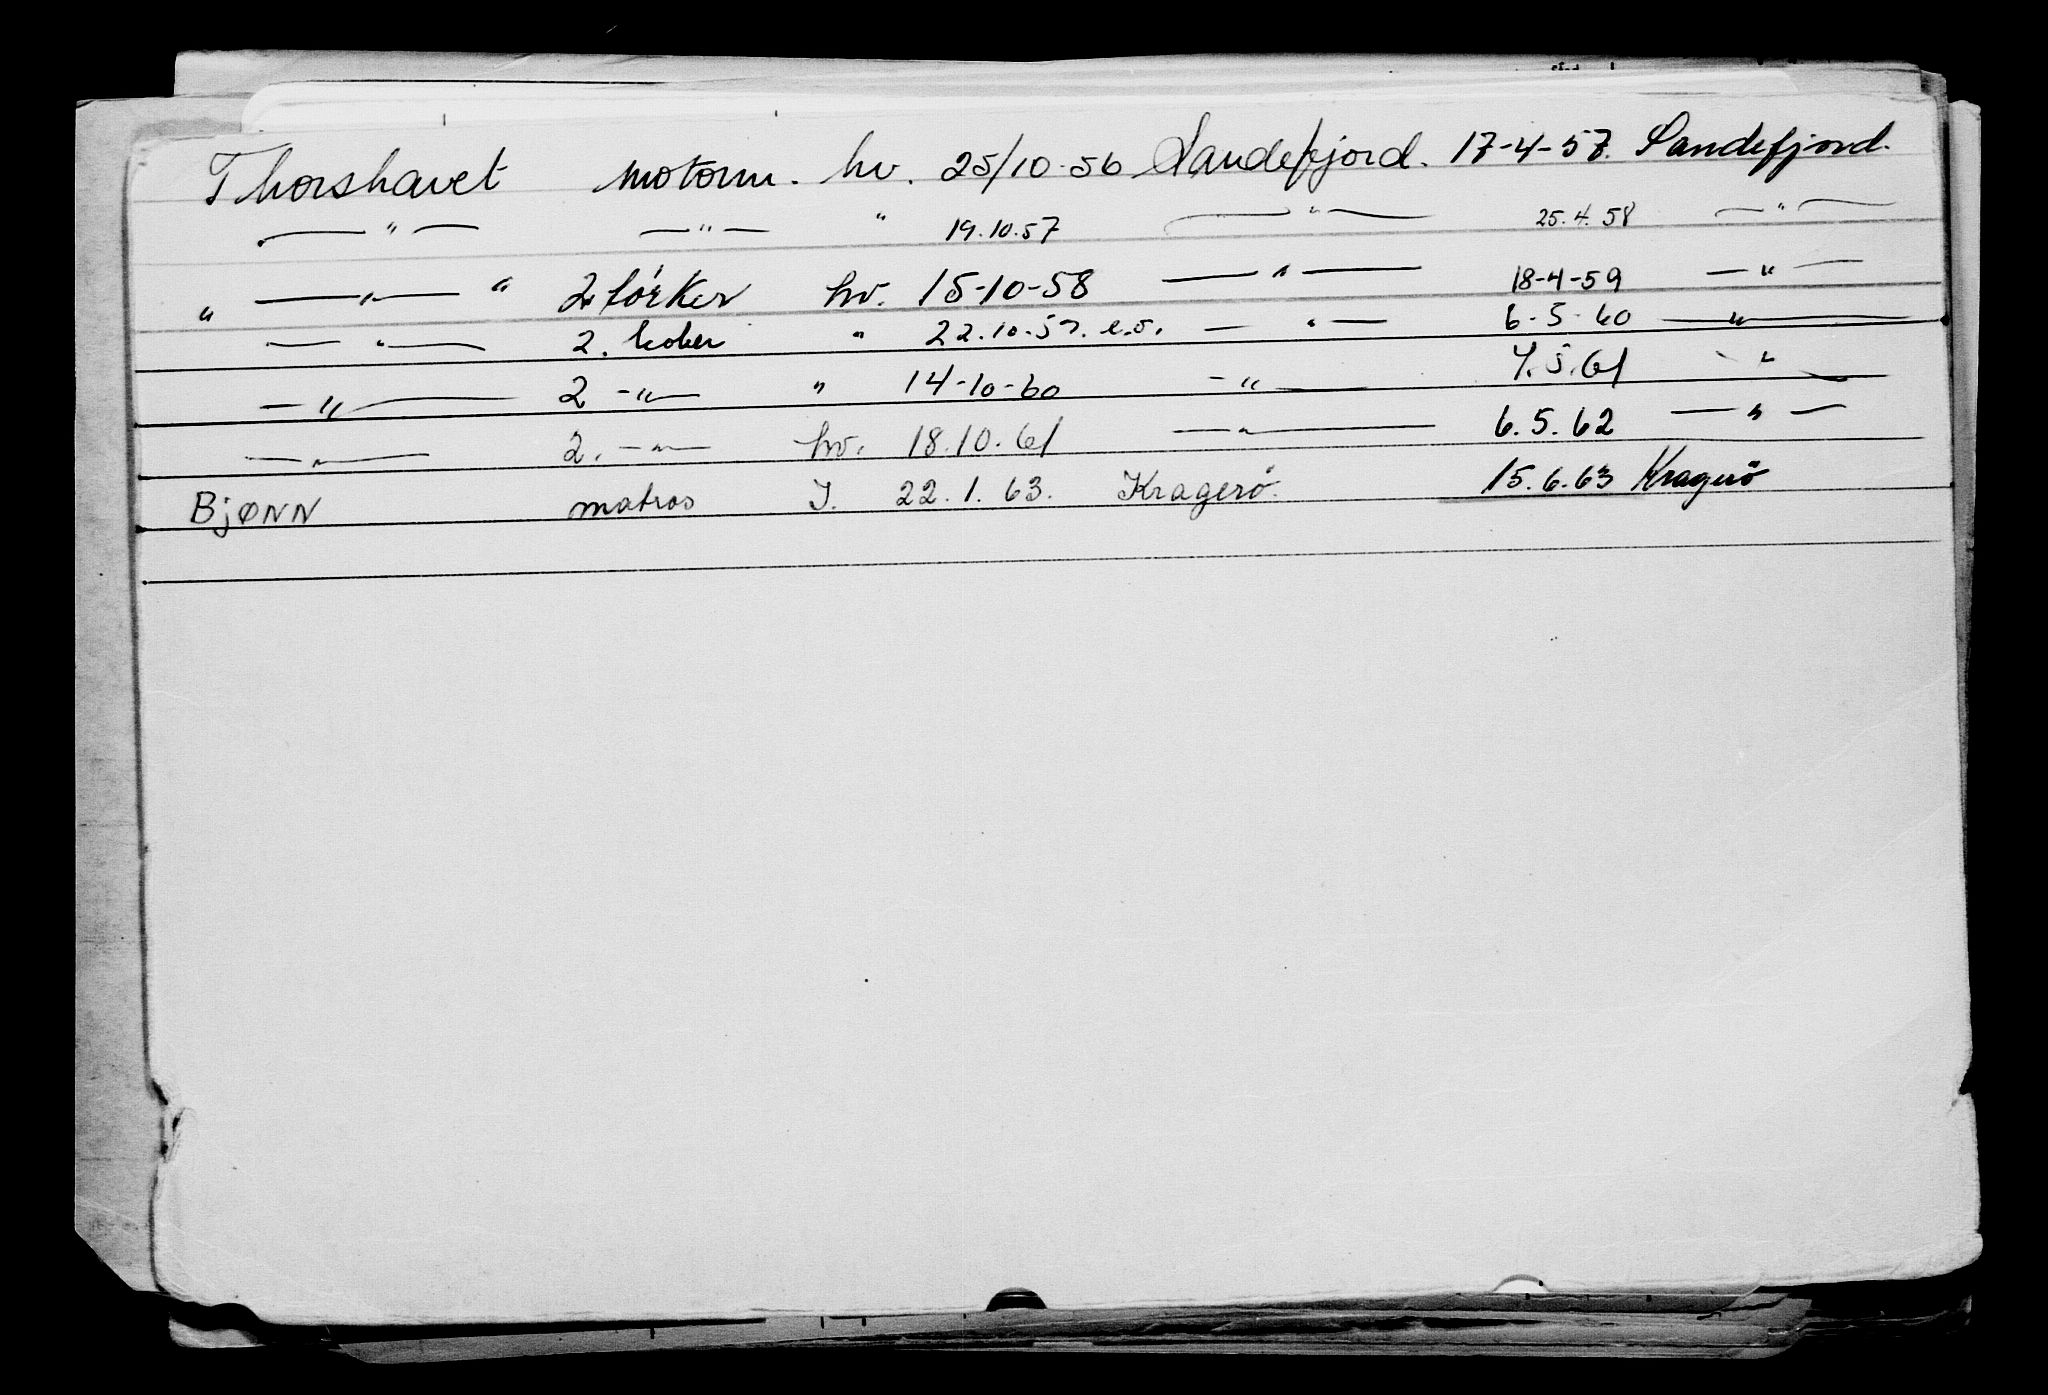 Thorshavet motorm. hv. 25/10-56 Sandefjord. 17-4-57. Sandefjord.
—"— —"— " 19.10.57 —"— 25.4.58 —"—
" —"— " 2 hv. 15-10-58 —"— 18-4-59 —"—
—"— 2. " 22.10.59. —"— 6-5-60 —"—
—"— 2 —"— " 14-10-60 —"— 7.5.61 "
—"— 2. —"— hv. 18.10.61 —"— 6.5.62 —"—
BjØNN matros I. 22.1.63. Kragerö. 15.6.63 Kragerö